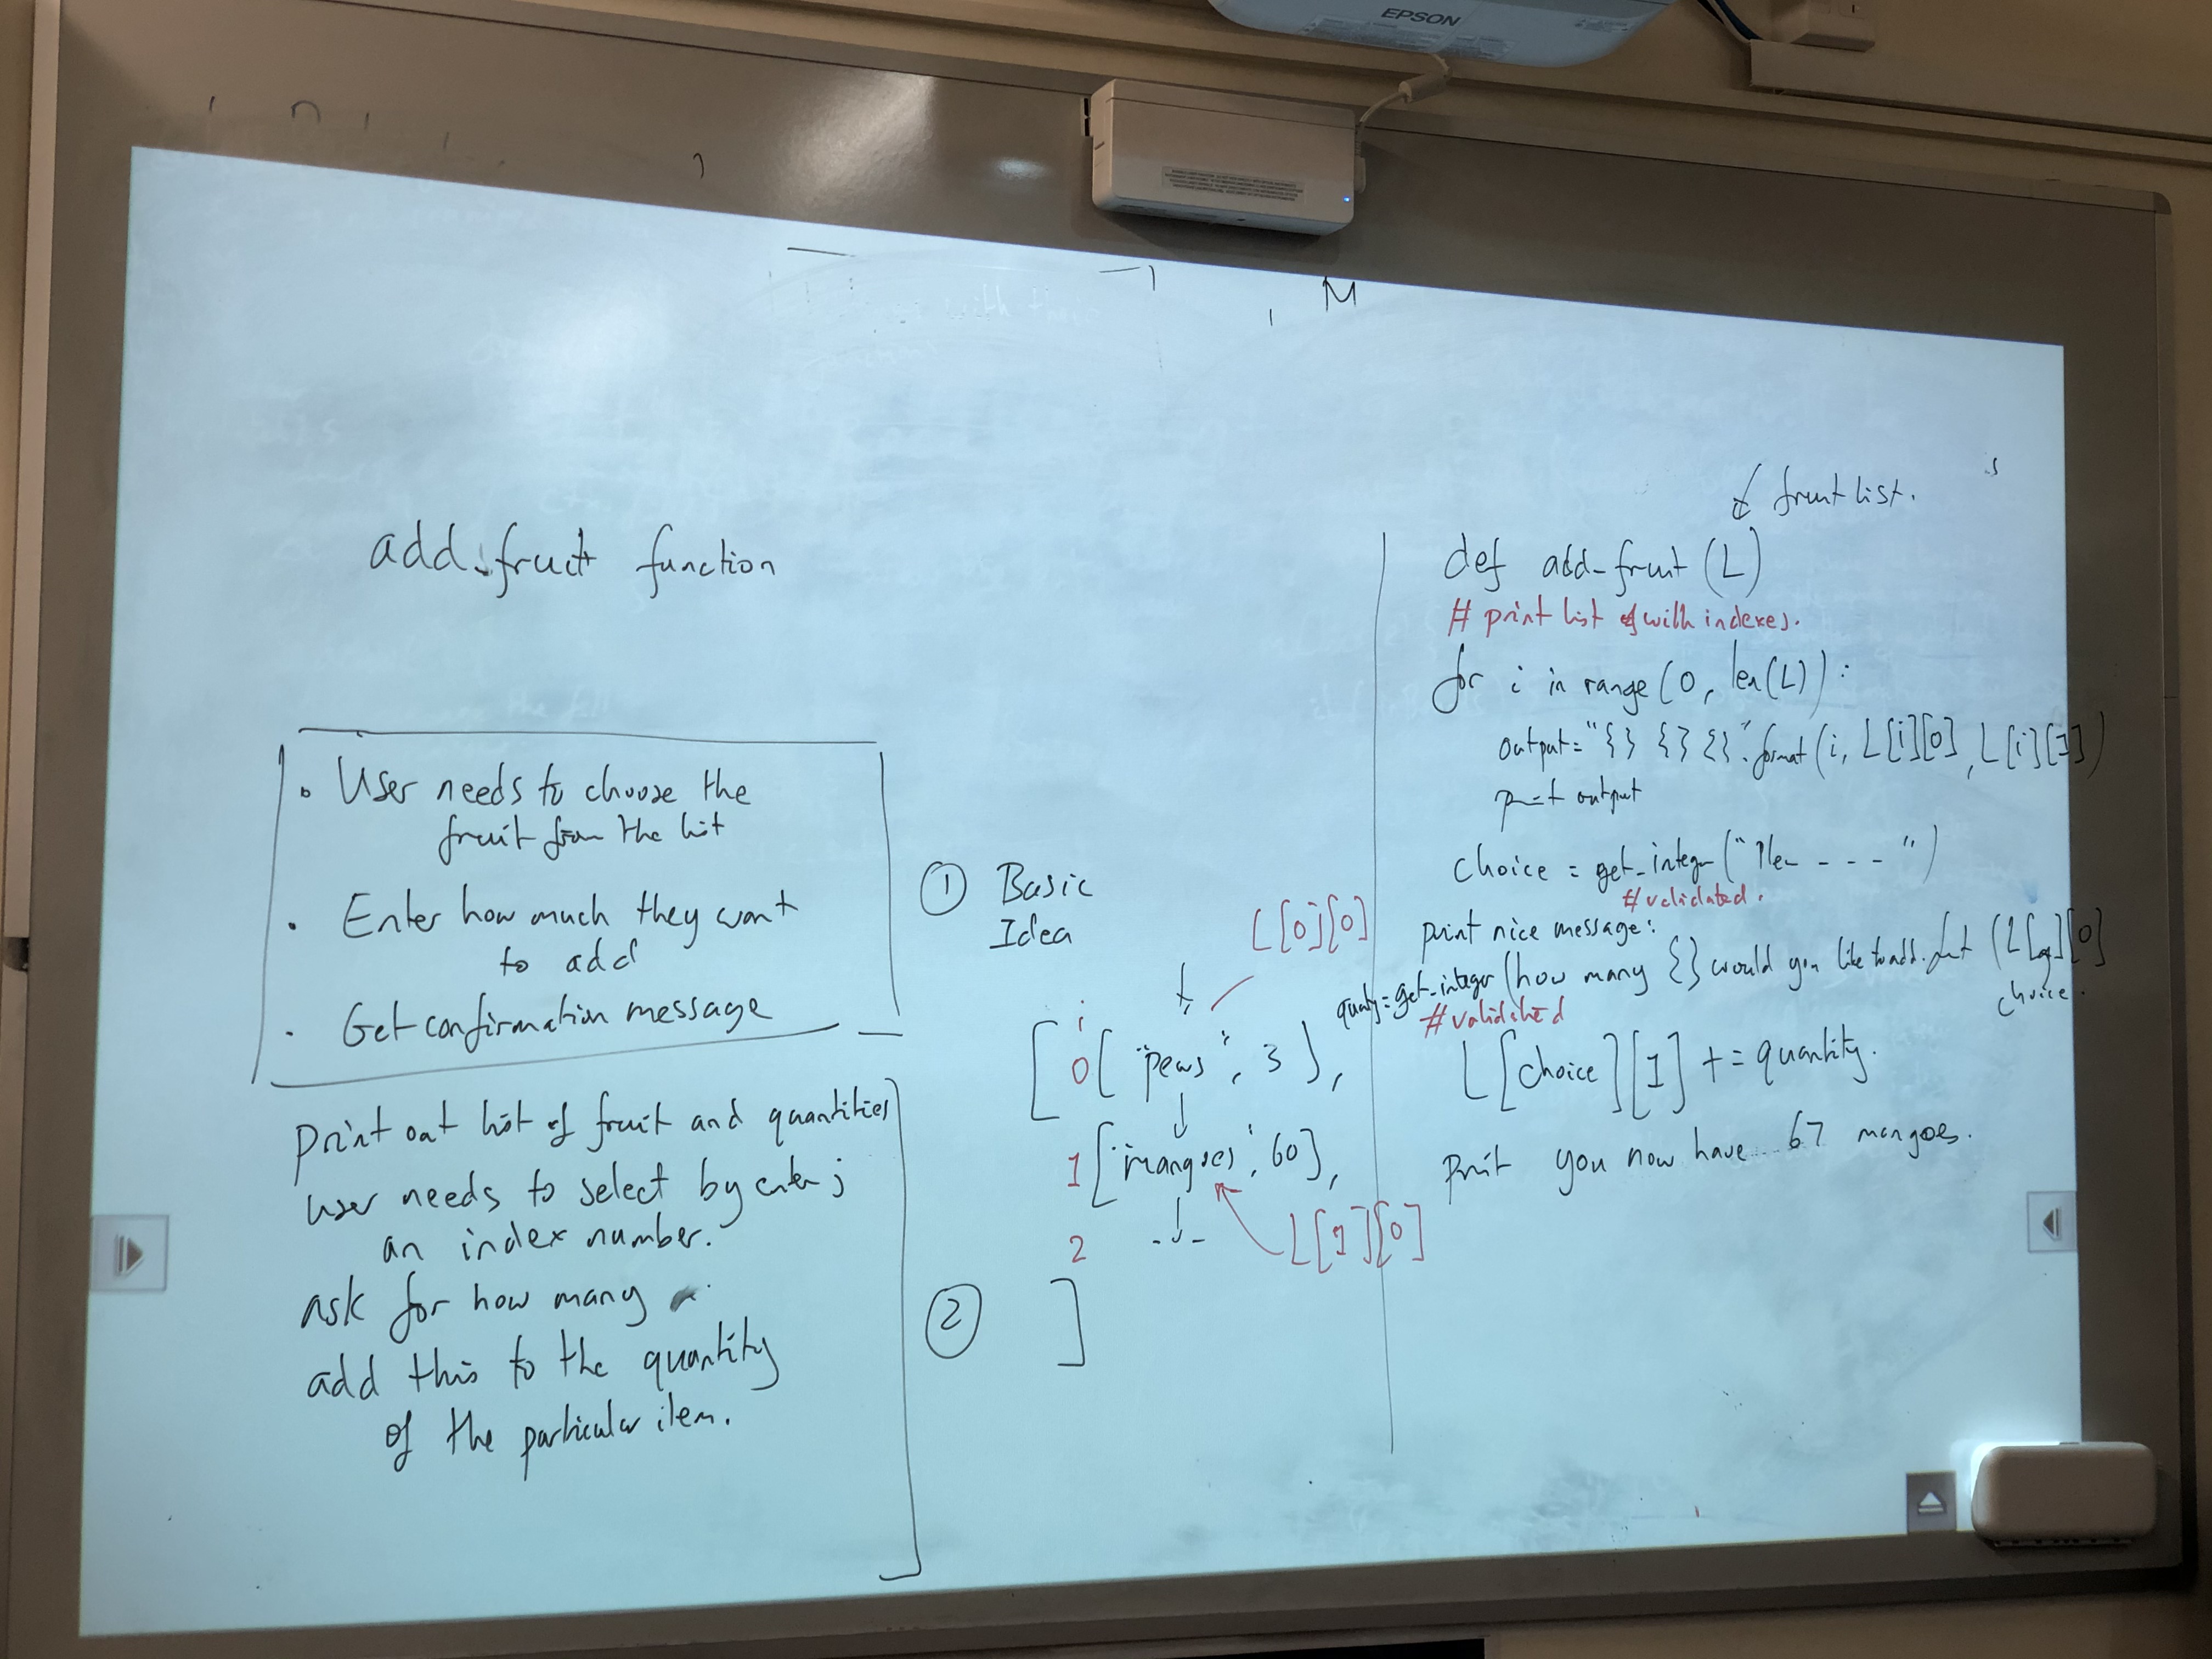 EPSON
M
add_fruit function
• User needs to choose the
fruit from the list
• Enter how much they want
to add
• Get confirmation message
Print out list of fruit and quantities
user needs to select by
an index number.
ask for how many
add this to the quantity
of the particular item.
① Basic
Idea
L[0][0]
i
0 ["pears", 3],
1 ["mangoes", 60],
2
L[1][0]
②
]
fruit list.
def add_fruit (L)
# print list with indexes.
for i in range (0, len(L)):
output = "{} {} {}".format (i, L[i][0], L[i][1])
print output
choice = get_integer (" - - - ")
# validated.
print nice message:
get_integer (how many {} would you like to add. [0]
choice.
# validated
L[choice][1] += quantity.
Print you now have... 67 mangoes.